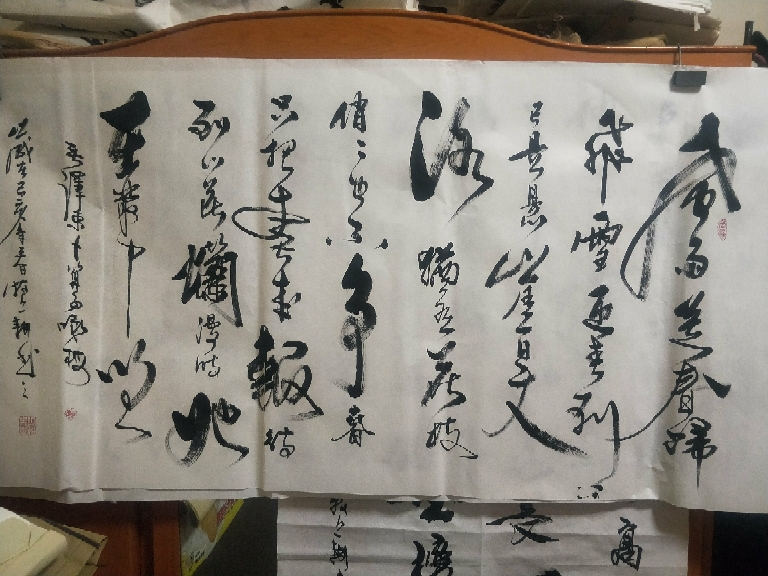 風雨送春歸
飛雪迎春到
已是懸崖百丈
冰猶有花枝
俏〻也不争春
只把春來報待
到山花爛漫時她
在叢中笑
毛澤東卜算子詠梅
己亥年春
高